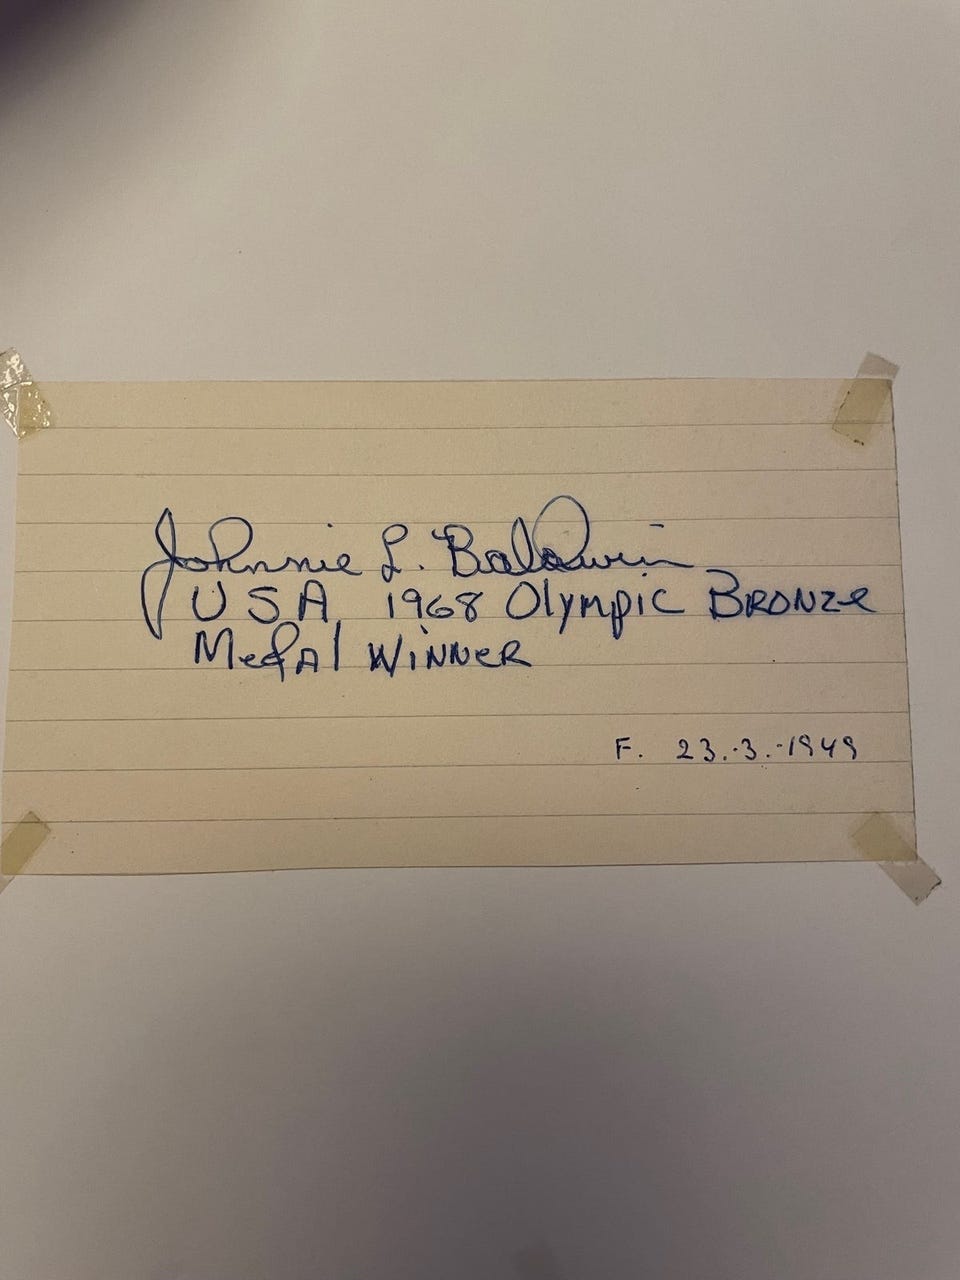 Johnnie L. Baldwin
USA 1968 Olympic BRONZe
MedAl WiNNeR
F. 23.-3.-1949